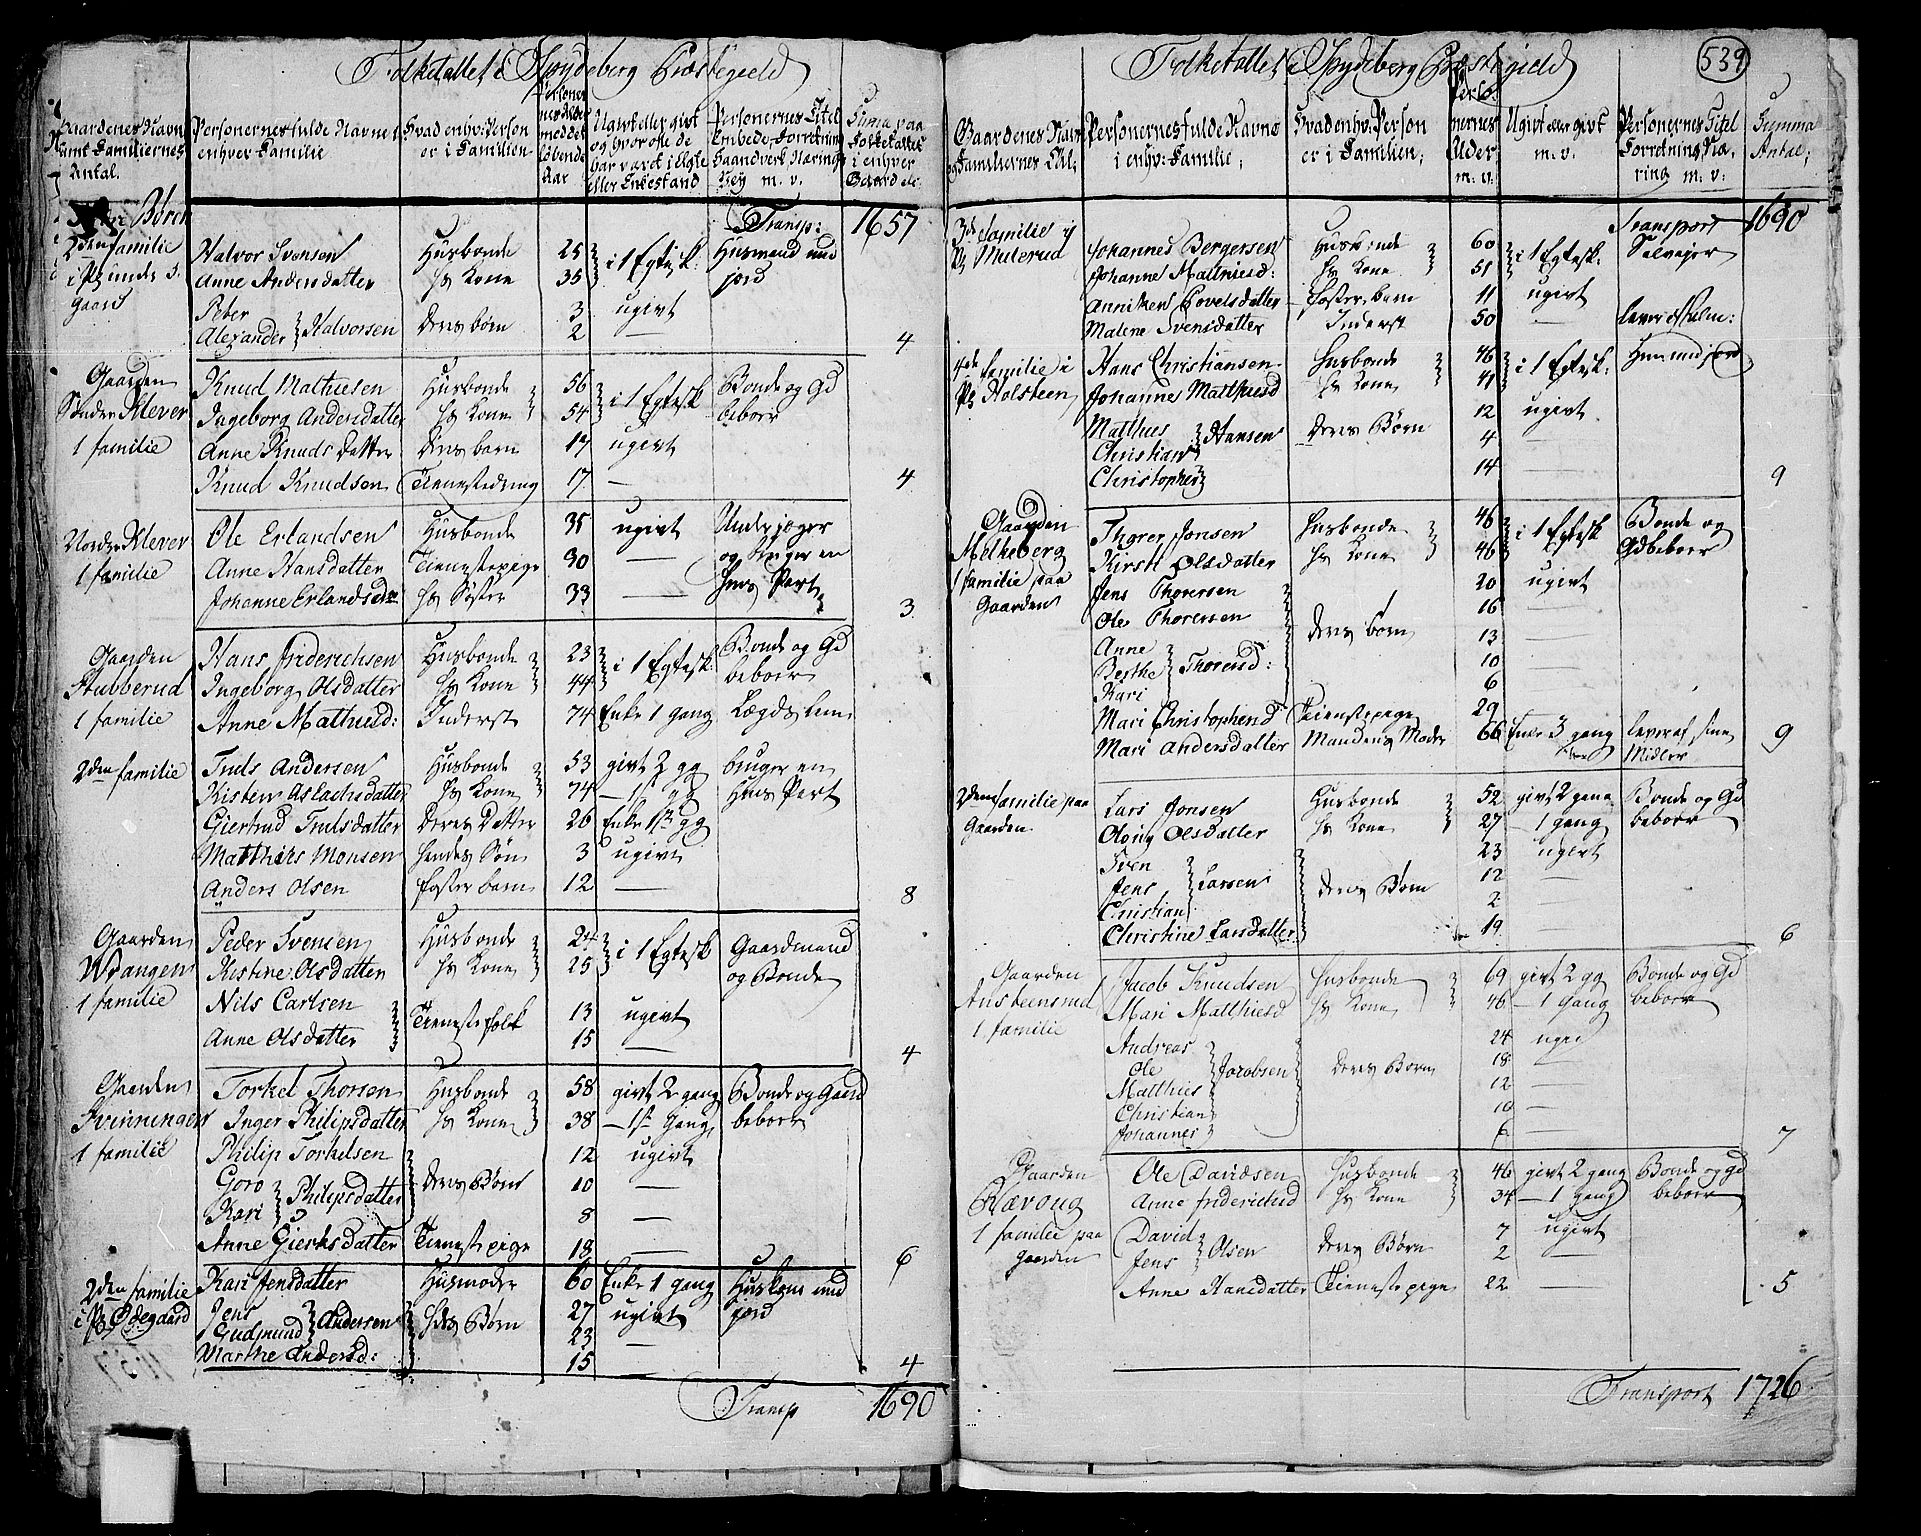 Folketallet i Spydeberg Præstegield
Gaardenes Navn samt Familiernes Antal. | Personernes fulde Navne i enhver Familie | Hvad enhv: Person er i Familien | Personernes Alder med det løbende Aar | Ugivt eller givt og hvor ofte de har været i Egte eller Enkestand | Personernes Titel Embede, Forretning Haandverk Næring Vey m. v. | Suma paa Folketallet i enhver Gaard etc
Transp: 1657
2den familie i Pl: under s: Gaard | Halvor Svensen | Husbonde | 25 | i 1 Egtesk: | Husmand med jord
Anne Andersdatter | hs Kone | 35
Peter } Halvorsen | deres børn | 3 | ugivt
Alexander | 2 | — | 4
Gaarden Sønder Klever 1 familie | Knud Mathiesen | Husbonde | 56 | i 1 Egtesk | Bonde og Gd beboer
Ingeborg Andersdatter | hs Kone | 54
Anne Knuds Datter | deres barn | 19 | ugivt
Knud Knudsen | Tienestedreng | 17 | — | 4
Nordre Klever 1 familie | Ole Erlandsen | Husbonde | 35 | ugivt | Underjæger og bruger en
Anne Hansdatter | Tienestepige | 30 | —
Johanne Erlandsdr | hs Søster | 33 | — | 3
Gaarden Stubberud 1 familie | Hans Friderichsen | Husbonde | 23 | i 1 Egtesk: | Bonde og Gd beboer
Ingeborg Olsdatter | hs Kone | 44
Anne Mathiesd: | Inderst | 74 | Enke 1 gang | Lægdslem
2den familie | Truls Andersen | Husbonde | 53 | givt 2 gg | bruger en
Kisten Aslachsdatter | hs Kone | 74 | — 1st gg
Giertrud Trulsdatter | deres Datter | 26 | Enke 1ste gg
Matthies Monsen | hendes Søn | 3 | ugivt
Anders Olsen | foster barn | 12 | — | 8
Gaarden Wrangen 1 familie | Peder Svensen | Husbonde | 24 | i 1 Egtesk | Gaardmand og Bonde
Kistine Olsdatter | hs Kone | 25
Nils Carlsen | Tienestefolk | 13 | ugivt
Anne Olsdatter | 15 | — | 4
Gaarden Svinningen 1 familie | Torkel Thorsen | Husbonde | 58 | givt 2 gang | Bonde og Gaard beboer
Inger Philipsdatter | hs Kone | 38 | — 1st Gang
Philip Torkelsen | deres Børn | 12 | ugivt
Goro } Philipsdatter | 10 | —
Kari | 8 | —
Anne Giertsdatter | Tienestepige | 18 | — | 6
2den familie i Pl: Ødegaard | Kari Jensdatter | Husmoder | 60 | Enke 1 gang | Huskone med jord
Jens } Andersen | hds Børn | 27 | ugivt
Gudmund | 23 | —
Marthe Andersd: | 15 | 4
Transp 1690
539
Folketallet i Spydeberg Præstegield
Gaardenes Navn og Familiernes Tal; | Personernes fulde Navne i enhv: Familie; | Hvad enhv: Person er i Familien; | Personernes Alder m. v: | Ugivt eller givt m. v. | Personernes Titel Forretning Næring m. v: | Summa Antal;
Transport 1690
3de familie i Pl: Milerud | Johannes Bergersen | Husbonde | 60 | i 1 Egtesk: | Selveyer
Johanne Matthiesd: | hs Kone | 51
Anniken Povelsdatter | foster barn | 11 | ugivt
Malene Svensdatter | Inderst | 50 | —
4de familie i Pl: Holsteen | Hans Christiansen | Husbonde | 46 | i 1 Egtesk:
Johanne Matthiesd | hs Kone | 41
Matthies } Hansen | deres Børn | 12 | ugivt
Christian | 4 | —
Christopher | 14 | — | 9
Gaarden Melkeberg 1 familie paa Gaarden | Thorer Jonsen | Husbonde | 46 | i 1 Egtesk | Bonde og Gdbeboer
Kirsti Olsdatter | hs Kone | 46
Jens Thoresen | deres børn | 20 | ugivt
Ole Thoresen | 16 | —
Anne } Thoresd: | 13 | —
Berthe | 10 | —
Kari | 6 | —
Mari Christophersd | Tienestepige | 29
Mari Andersdatter | Mandens Moder | 66 | Enke 3 gang | lever af sine Midler | 9
2den familie paa Gaarden | Lars Jonsen | Husbonde | 52 | givt 2 gang | Bonde og Gd beboer
Olvig Olsdatter | hs Kone | 27 | — 1 gang
Sven } Larsen | deres Børn | 23 | ugivt
Jens | 12 | —
Christian | 2
Christine Larsdatter | 19 | 6
Gaarden Austeensrud 1 familie | Jacob Knudsen | Husbonde | 69 | givt 2 gg | Bonde og Gd beboer
Mari Matthiesd | hs Kone | 46 | — 1 Gang
Andreas } Jacobsen | deres Børn | 24
Ole | 18 | —
Matthies | 12 | —
Christian | 10 | —
Johannes | 6 | — | 7
Gaarden Ræveoug 1 familie paa Gaarden | Ole Davidsen | Husbonde | 46 | givt 2 gang | Bonde og Gd beboer
Anne Friderichsd | hs Kone | 34 | — 1 gang
David } Olsen | deres Børn | 7 | ugivt
Jens | 2 | —
Anne Hansdatter | Tienestepige | 22 | — | 5
Transport 1726